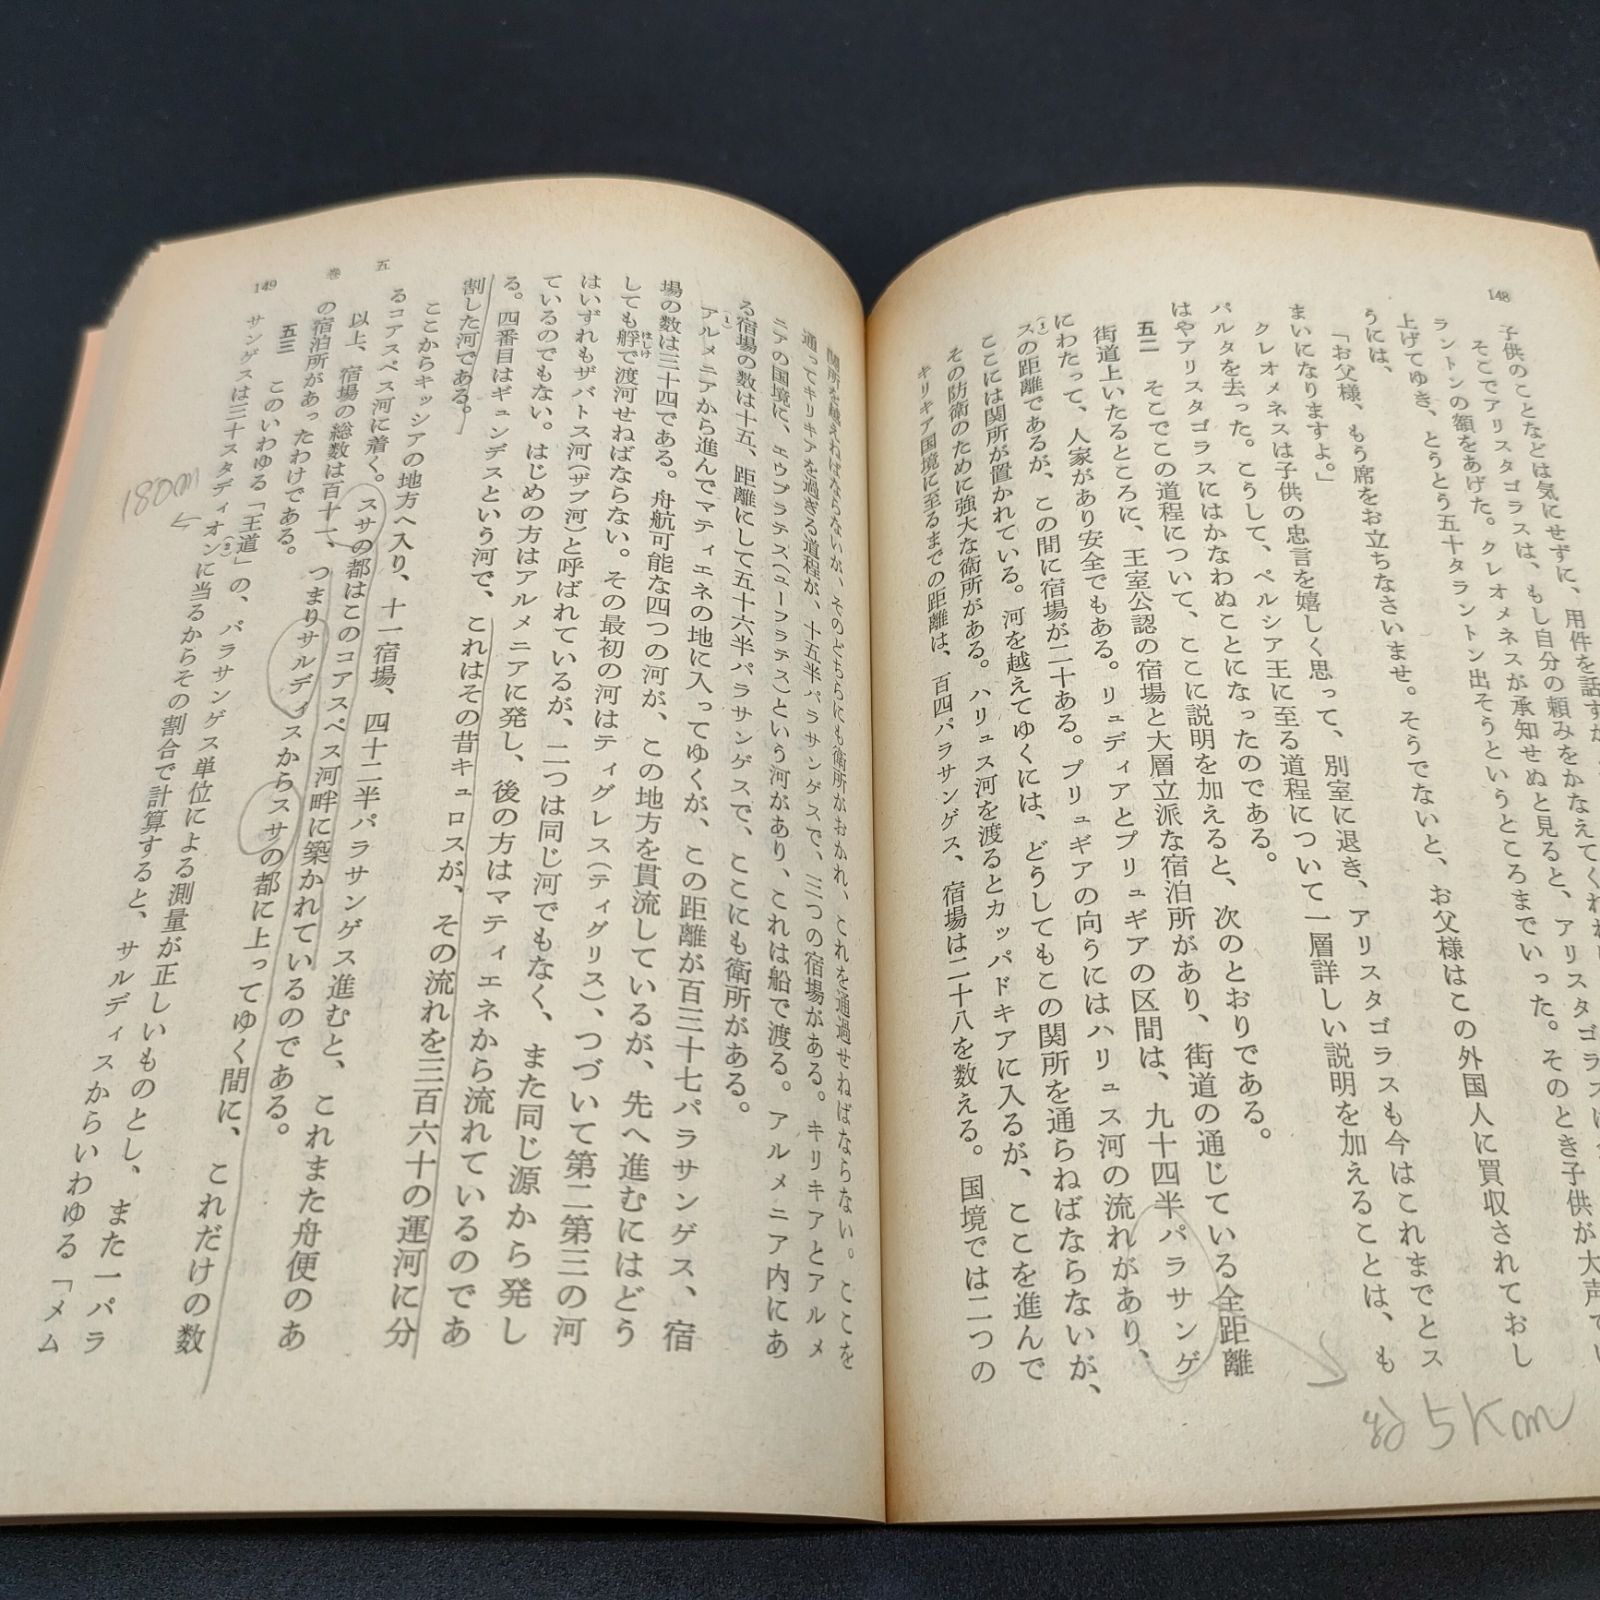 148
子供のことなどは気にせずに、用件を話すが
そこでアリスタゴラスは、もし自分の頼みをかなえてくれれば
ラントンの額をあげた。クレオメネスが承知せぬと見ると、アリスタゴラスは
上げてゆき、とうとう五十タラントン出そうというところまでいった。そのとき子供が大声で
うには、
「お父様、もう席をお立ちなさいませ。そうでないと、お父様はこの外国人に買収されておし
まいになりますよ。」
クレオメネスは子供の忠言を嬉しく思って、別室に退き、アリスタゴラスも今はこれまでとス
パルタを去った。こうして、ペルシア王に至る道程について一層詳しい説明を加えることは、も
はやアリスタゴラスにはかなわぬことになったのである。
五二　そこでこの道程について、ここに説明を加えると、次のとおりである。
街道上いたるところに、王室公認の宿場と大層立派な宿泊所があり、街道の通じている全距離
にわたって、人家があり安全でもある。リュディアとプリュギアの区間は、九十四半パラサンゲ
スの距離であるが、この間に宿場が二十ある。プリュギアの向うにはハリュス河の流れがあり、
(1)
ここには関所が置かれている。河を越えてゆくには、どうしてもこの関所を通らねばならないが、
その防衛のために強大な衛所がある。ハリュス河を渡るとカッパドキアに入るが、ここを進んで
キリキア国境に至るまでの距離は、百四パラサンゲス、宿場は二十八を数える。国境では二つの
約5Km
関所を越えねばならないが、そのどちらにも衛所がおかれ、これを通過せねばならない。ここを
通ってキリキアを過ぎる道程が、十五半パラサンゲスで、三つの宿場がある。キリキアとアルメ
ニアの国境に、エウプラテス(ユーフラテス)という河があり、これは船で渡る。アルメニア内にあ
る宿場の数は十五、距離にして五十六半パラサンゲスで、ここにも衛所がある。
(1)
アルメニアから進んでマティエネの地に入ってゆくが、この距離が百三十七パラサンゲス、宿
場の数は三十四である。舟航可能な四つの河が、この地方を貫流しているが、先へ進むにはどう
しても艀で渡河せねばならない。その最初の河はティグレス(ティグリス)、つづいて第二第三の河
はしけ
はいずれもザバトス河(ザブ河)と呼ばれているが、二つは同じ河でもなく、また同じ源から発し
ているのでもない。はじめの方はアルメニアに発し、後の方はマティエネから流れているのであ
る。四番目はギュンデスという河で、これはその昔キュロスが、その流れを三百六十の運河に分
割した河である。
ここからキッシアの地方へ入り、十一宿場、四十二半パラサンゲス進むと、これまた舟便のあ
るコアスペス河に着く。スサの都はこのコアスペス河畔に築かれているのである。
以上、宿場の総数は百十一、つまりサルディスからスサの都に上ってゆく間に、これだけの数
の宿泊所があったわけである。
五三　このいわゆる「王道」の、パラサンゲス単位による測量が正しいものとし、また一パラ
(2)
サンゲスは三十スタディオンに当るからその割合で計算すると、サルディスからいわゆる「メム
五
巻
149
180m